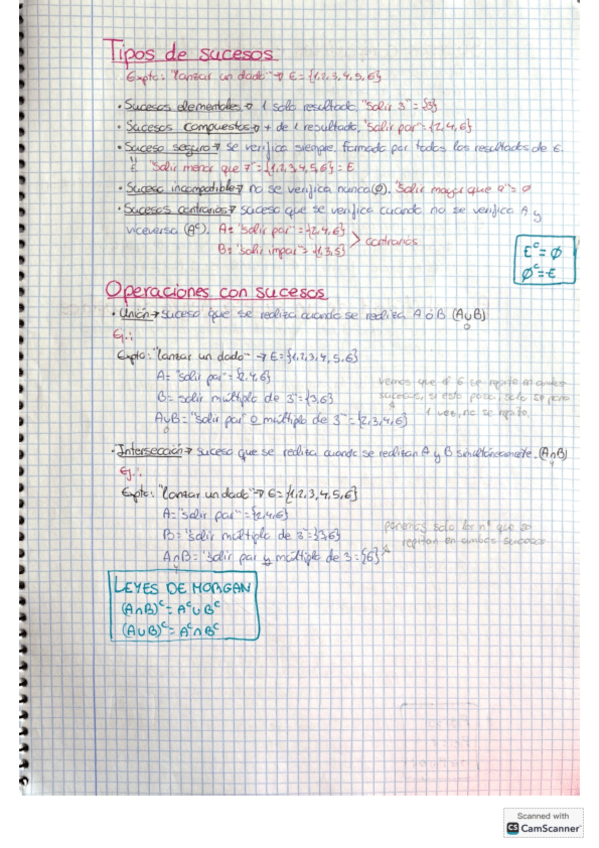 Tipos de sucesos
Expto: "lanzar un dado" → E = {1,2,3,4,5,6}
• Sucesos elementales → 1 solo resultado. "Salir 3" = {3}
• Sucesos compuestos → + de 1 resultado. "Salir par" = {2,4,6}
• Suceso seguro → se verifica siempre, formado por todos los resultados de E.
"Salir menor que 7" = {1,2,3,4,5,6} = E
• Suceso incompatible → no se verifica nunca (∅). "Salir mayor que 9" = ∅
• Sucesos contrarios → suceso que se verifica cuando no se verifica A y
viceversa (Aᶜ). A = "salir par" = {2,4,6}
B = "salir impar" = {1,3,5}
> contrarios
Eᶜ = ∅
∅ᶜ = E
Operaciones con sucesos
• Unión → suceso que se realiza cuando se realiza A ó B (A∪B)
o
Ej.:
Expto: "lanzar un dado" → E = {1,2,3,4,5,6}
A = "salir par" = {2,4,6}
B = "salir múltiplo de 3" = {3,6}
A∪B = "salir par" o múltiplo de 3" = {2,3,4,6}
o
vemos que el 6 se repite en ambos
sucesos, si esto pasa, solo se pone
1 vez, no se repite.
• Intersección → suceso que se realiza cuando se realizan A y B simultáneamente. (A∩B)
y
Ej.:
Expto: "lanzar un dado" → E = {1,2,3,4,5,6}
A = "salir par" = {2,4,6}
B = "salir múltiplo de 3" = {3,6}
A∩B = "salir par y múltiplo de 3 = {6}
y
ponemos solo los nº que se
repitan en ambos sucesos
LEYES DE MORGAN
(A∩B)ᶜ = Aᶜ∪Bᶜ
(A∪B)ᶜ = Aᶜ∩Bᶜ
Scanned with
CS CamScanner